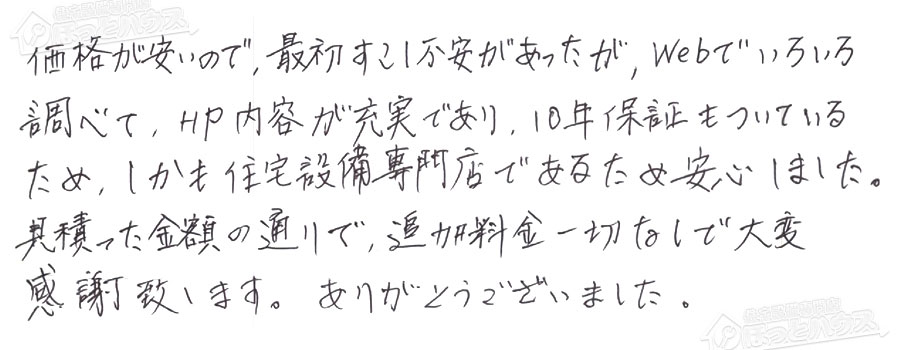 価格が安いので, 最初すこし不安があったが, Webでいろいろ
調べて, HP内容が充実であり, 10年保証もついている
ため, しかも住宅設備専門店であるため安心しました。
見積った金額の通りで, 追加料金一切なしで大変
感謝致します。ありがとうございました。
住宅設備専門店
ほっとハウス